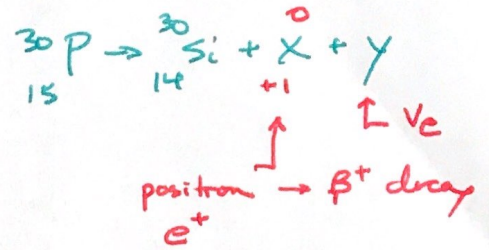 ³⁰₁₅P → ³⁰₁₄Si + ⁰₊₁X + Y
νe
positron → β⁺ decay
e⁺